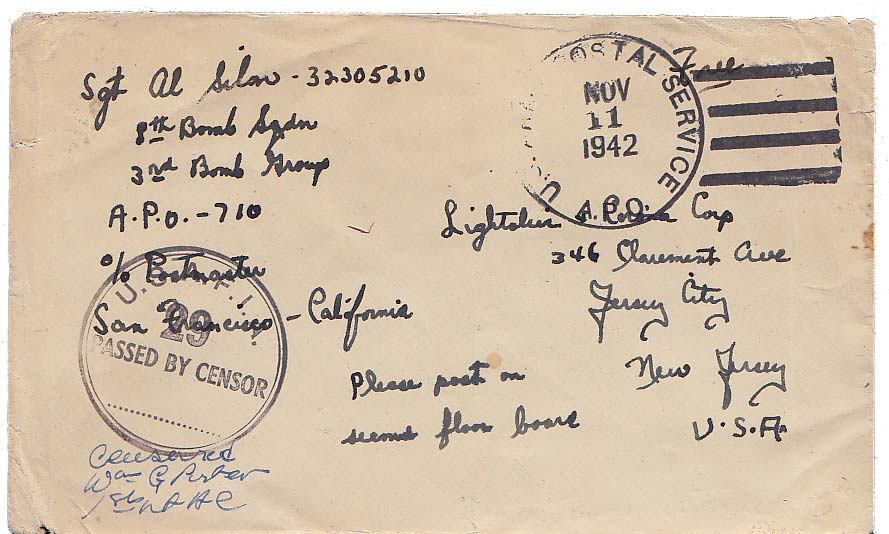 Sgt Al Silon - 32305210
8th Bomb Sqdn
3rd Bomb Group
A.P.O. - 710
% Postmaster
San Francisco - California
Free
U.S. POSTAL SERVICE
NOV
11
1942
A.P.O.
Corp
346 Claremont Ave
Jersey City
New Jersey
U.S.A.
Please post on
second floor board
29
PASSED BY CENSOR
Censored
Wm G